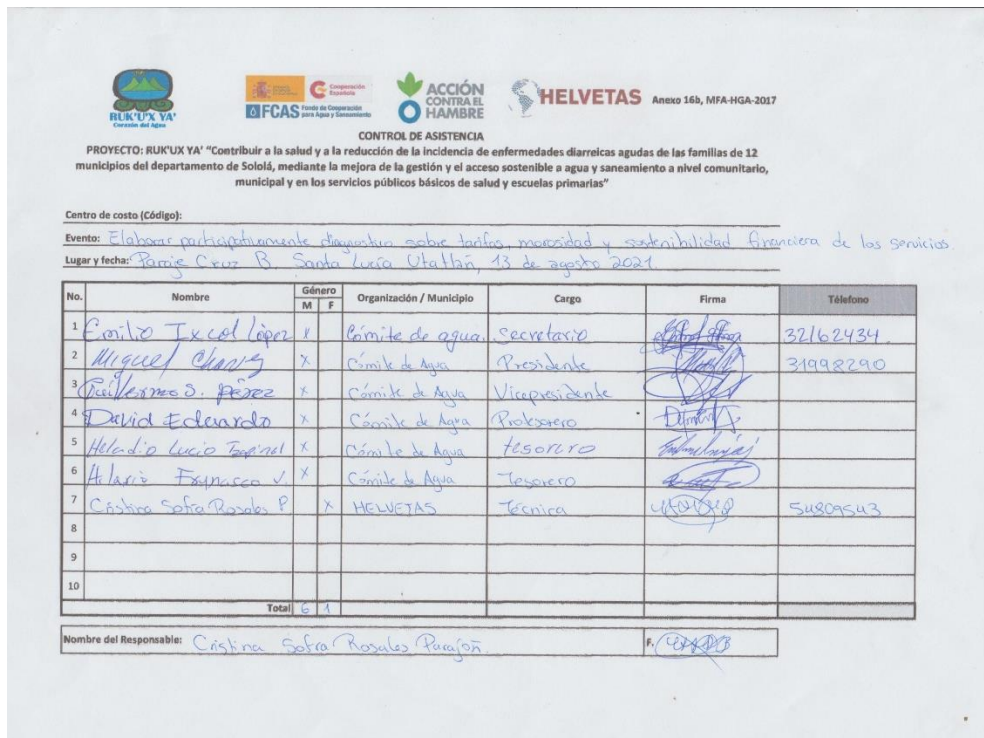 RUK'U'X YA'
Corazón del Agua
Cooperación Española
FCAS Fondo de Cooperación para Agua y Saneamiento
ACCIÓN CONTRA EL HAMBRE
HELVETAS Anexo 16b, MFA-HGA-2017
CONTROL DE ASISTENCIA
PROYECTO: RUK'UX YA' "Contribuir a la salud y a la reducción de la incidencia de enfermedades diarreicas agudas de las familias de 12
municipios del departamento de Sololá, mediante la mejora de la gestión y el acceso sostenible a agua y saneamiento a nivel comunitario,
municipal y en los servicios públicos básicos de salud y escuelas primarias"
Centro de costo (Código):
Evento: Elaborar participativamente diagnostico sobre tarifas, morosidad y sostenibilidad financiera de los servicios.
Lugar y fecha: Paraje Cruz B. Santa Lucía Utatlán, 13 de agosto 2021
No. Nombre Género M F Organización / Municipio Cargo Firma Télefono
1 Emilio Ixcol López x Cómite de agua. Secretario 32162434
2 Miguel x Cómite de Agua Presidente 31998290
3 Guillermo S. Pérez x Cómite de Agua Vicepresidente
4 David Eduardo x Cómite de Agua
5 Lucio x Cómite de Agua tesorero
6 Hilario x Cómite de Agua Tesorero
7 Cristina Sofía Rosales P x HELVETAS Técnica 54809543
8
9
10
Total 6 1
Nombre del Responsable: Cristina Sofía Rosales F.